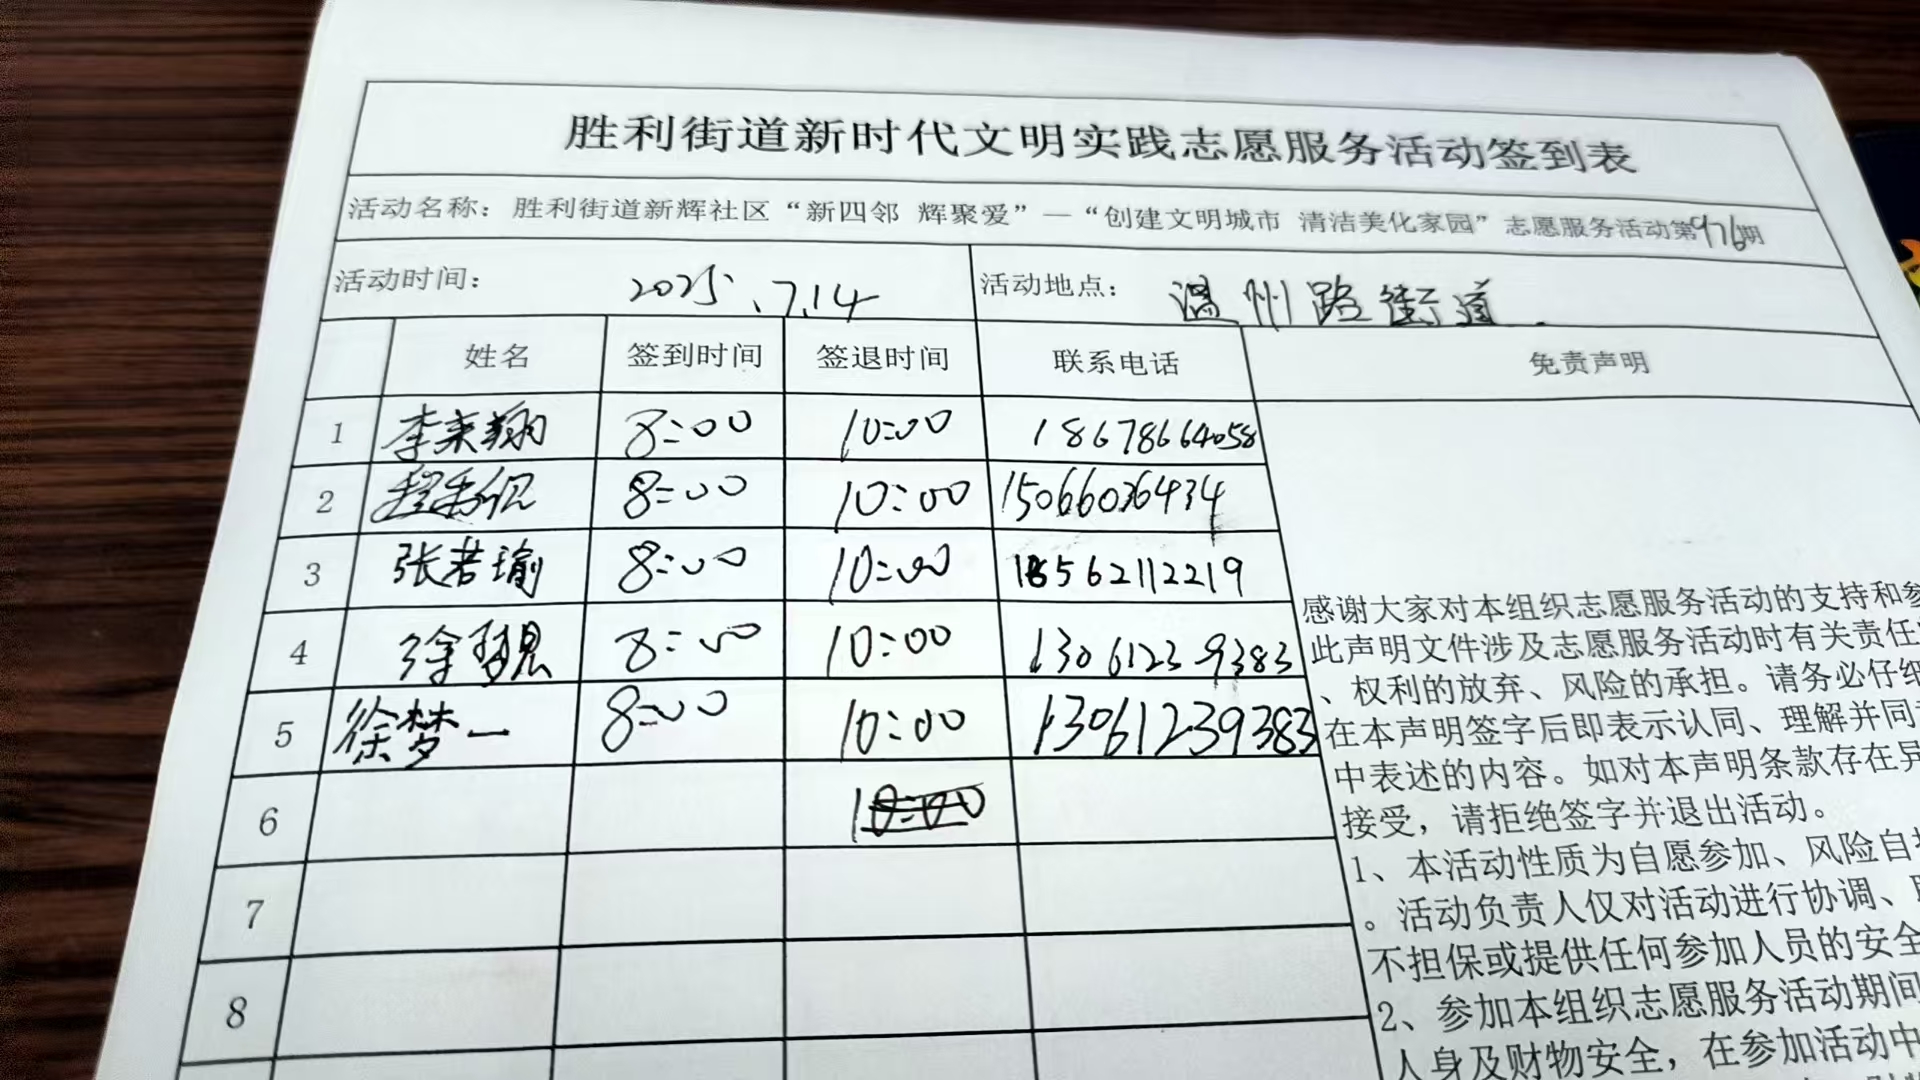 胜利街道新时代文明实践志愿服务活动签到表
活动名称：胜利街道新辉社区“新四邻 辉聚爱”—“创建文明城市 清洁美化家园”志愿服务活动第976期
活动时间： 2025.7.14 活动地点： 温州路街道.
姓名 签到时间 签退时间 联系电话 免责声明
1 李来翔 8:00 10:00 18678664058
2 8:00 10:00 15066036434
3 张若瑜 8:00 10:00 18562112219
4 徐 8:00 10:00 13061239383
5 徐梦一 8:00 10:00 13061239383
6 10:00
7
8
感谢大家对本组织志愿服务活动的支持和参
此声明文件涉及志愿服务活动时有关责任
、权利的放弃、风险的承担。请务必仔细
在本声明签字后即表示认同、理解并同意
中表述的内容。如对本声明条款存在异
接受，请拒绝签字并退出活动。
1、本活动性质为自愿参加、风险自
。活动负责人仅对活动进行协调、
不担保或提供任何参加人员的安全
2、参加本组织志愿服务活动期间
人身及财物安全，在参加活动中